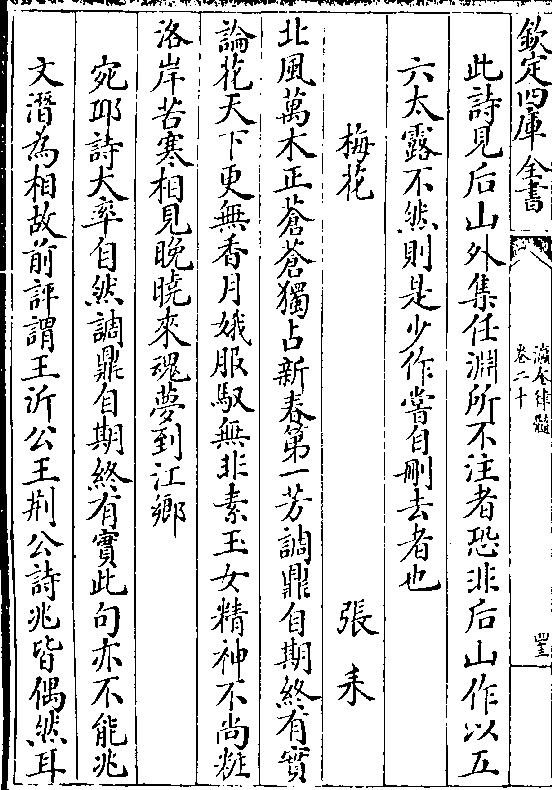 欽定四庫全書
瀛奎律髓
卷二十
此詩見后山外集任淵所不注者恐非后山作以五
六太露不然則是少作嘗自刪去者也
梅花 張耒
北風萬木正蒼蒼獨占新春第一芳調鼎自期終有實
論花天下更無香月娥服馭無非素玉女精神不尚粧
洛岸苦寒相見晚曉來魂夢到江鄉
宛邱詩大率自然調鼎自期終有實此句亦不能兆
文潛為相故前評謂王沂公王荆公詩兆皆偶然耳